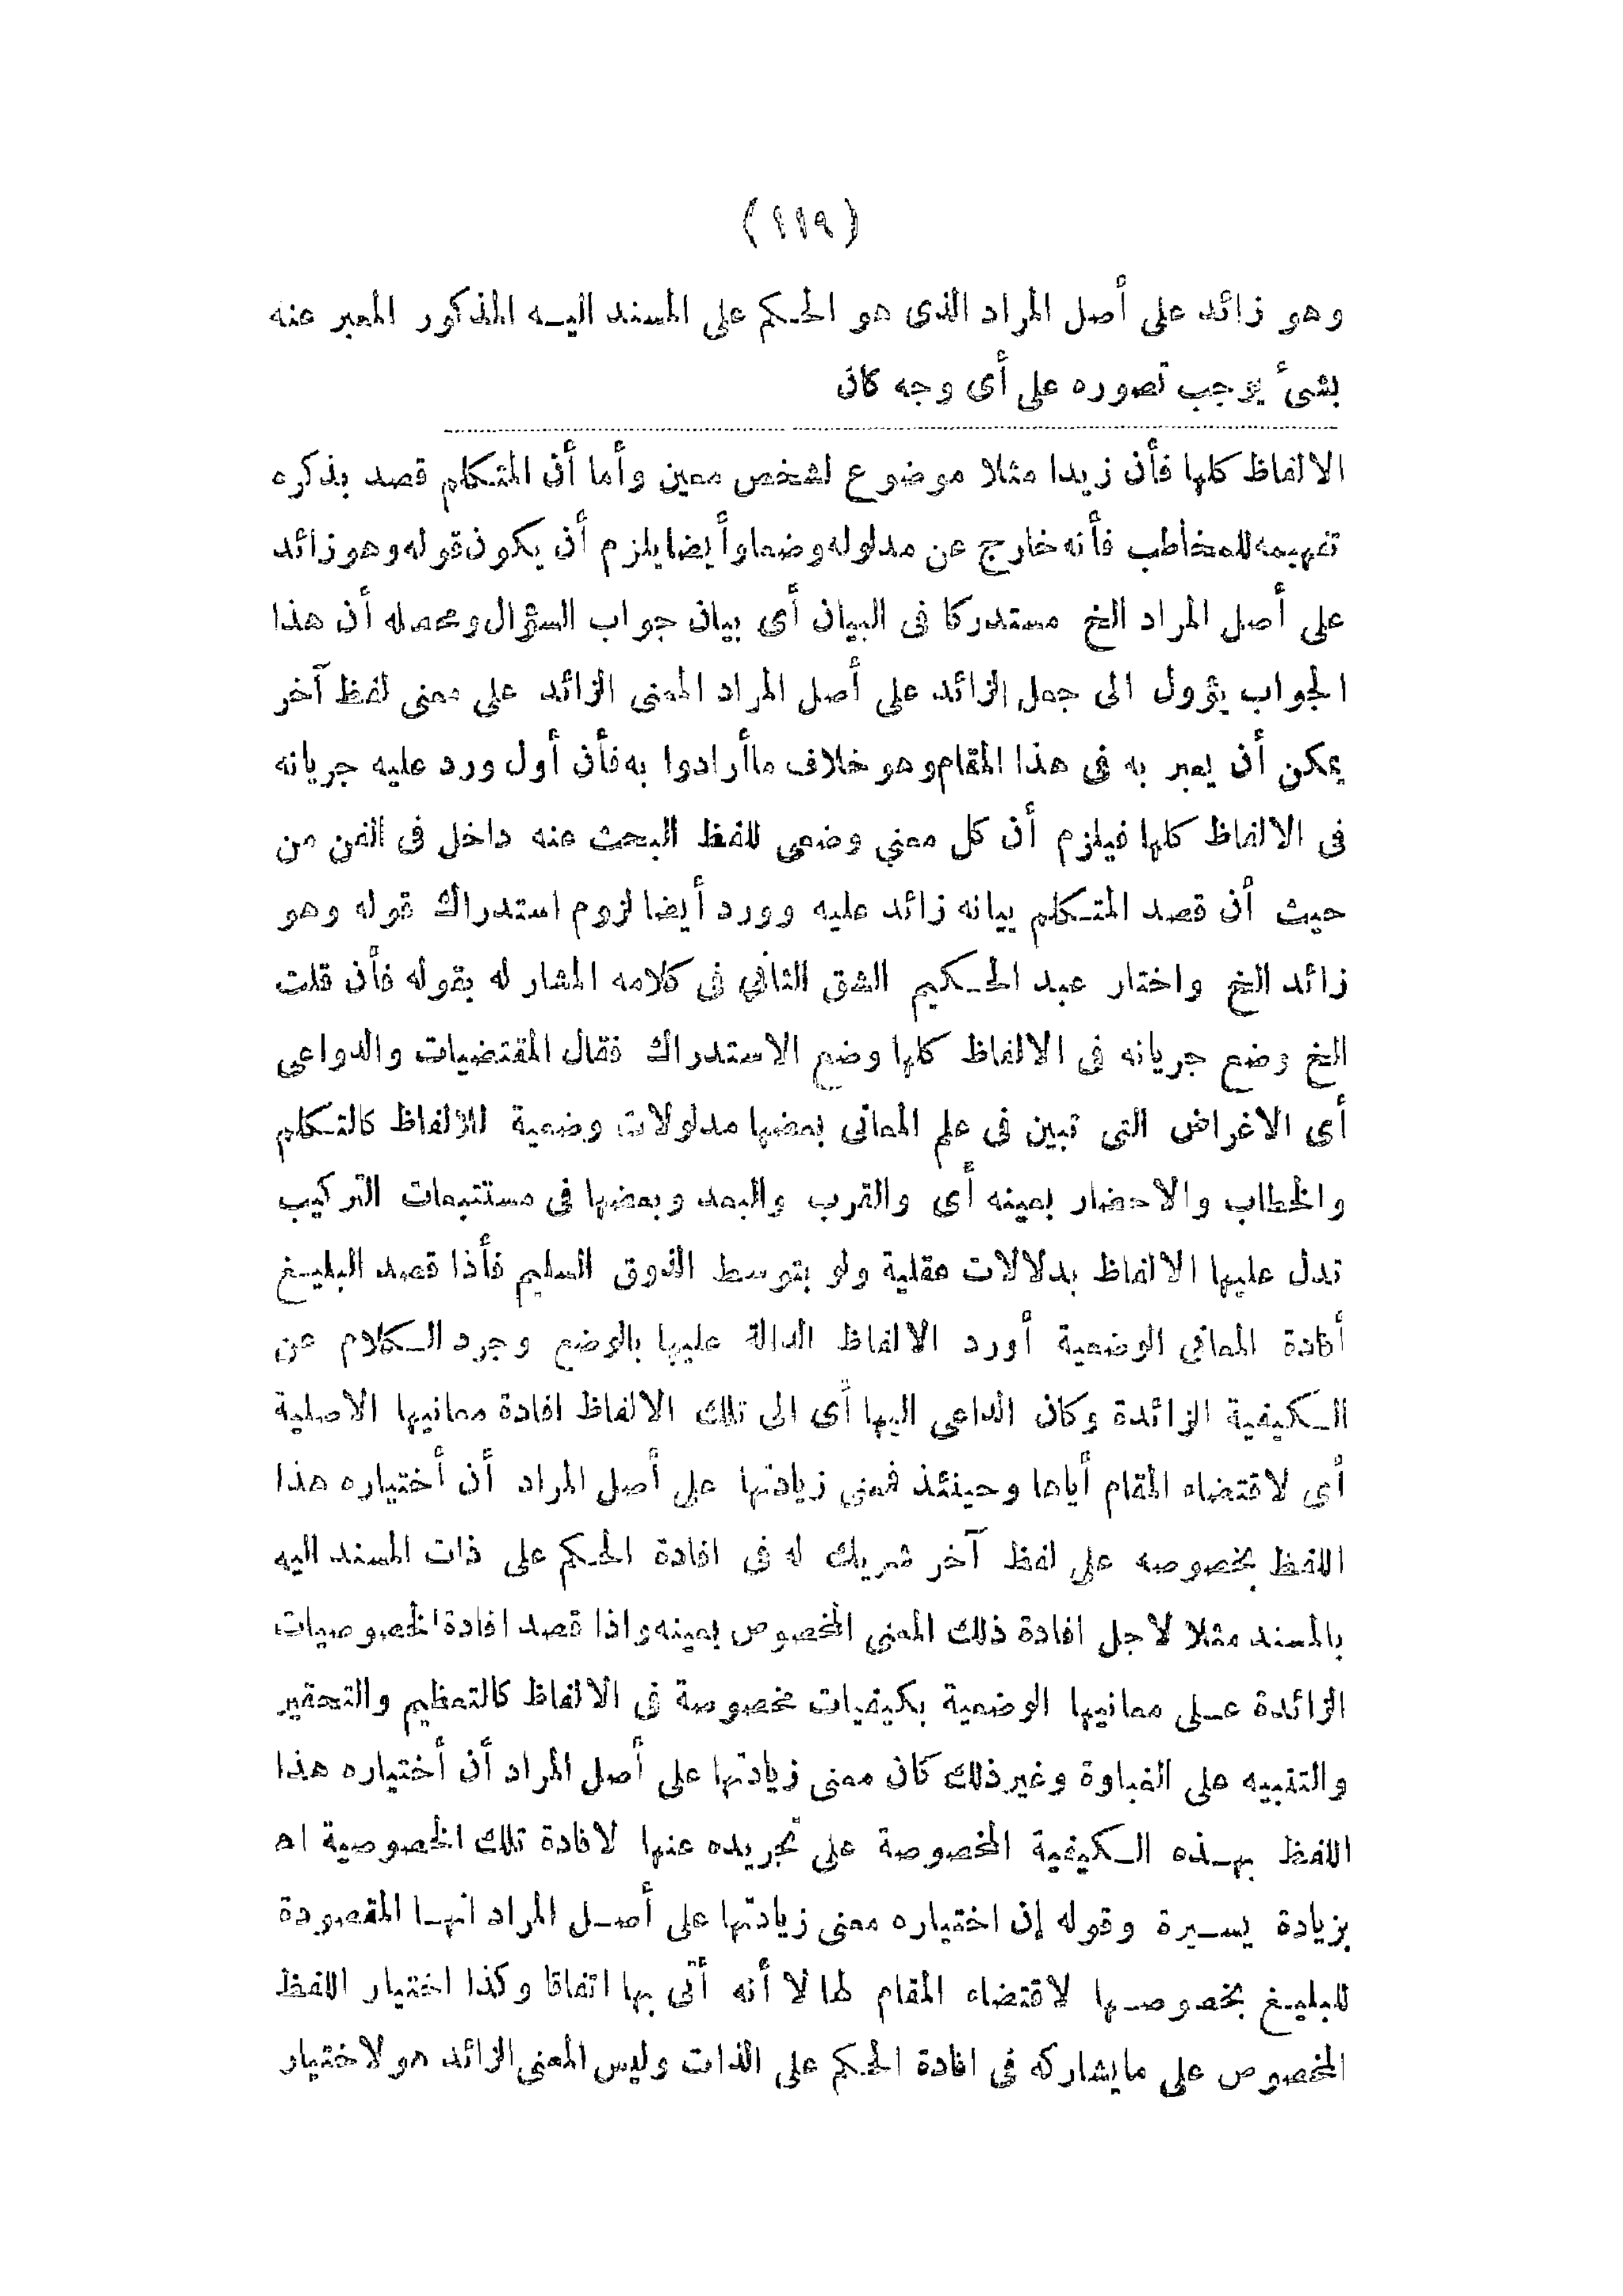 (١١٩)
وهو زائد على أصل المراد الذى هو الحكم على المسند اليه المذكور المعبر عنه
بشئ يوجب تصوره على أى وجه كان
الالفاظ كلها فأن زيدا مثلا موضوع لشخص معين وأما أن المتكلم قصد بذكره
تفهيمه للمخاطب فأنه خارج عن مدلوله وضعا وأيضا يلزم أن يكون قوله وهو زائد
على أصل المراد الخ مستدركا فى البيان أى بيان جواب السؤال ومحصله أن هذا
الجواب يؤول الى جعل الزائد على أصل المراد المعنى الزائد على معنى لفظ آخر
يمكن أن يعبر به فى هذا المقام وهو خلاف ماأرادوا به فأن أول ورد عليه جريانه
فى الالفاظ كلها فيلزم أن كل معنى وضعى للفظ البحث عنه داخل فى الفن من
حيث أن قصد المتكلم بيانه زائد عليه وورد أيضا لزوم استدراك قوله وهو
زائد الخ واختار عبد الحكيم الشق الثانى فى كلامه المشار له بقوله فأن قلت
الخ وضع جريانه فى الالفاظ كلها وضع الاستدراك فقال المقتضيات والدواعى
أى الاغراض التى تبين فى علم المعانى بعضها مدلولات وضعية للالفاظ كالتكلم
والخطاب والاحضار بعينه أى والقرب والبعد وبعضها فى مستتبعات التركيب
تدل عليها الالفاظ بدلالات عقلية ولو بتوسط الذوق السليم فأذا قصد البليغ
أفادة المعانى الوضعية أورد الالفاظ الدالة عليها بالوضع وجرد الكلام عن
الكيفية الزائدة وكان الداعى اليها أى الى تلك الالفاظ افادة معانيها الاصلية
أى لاقتضاء المقام أياها وحينئذ فمعنى زيادتها على أصل المراد أن أختياره هذا
اللفظ بخصوصه على لفظ آخر شريك له فى افادة الحكم على ذات المسند اليه
بالمسند مثلا لاجل افادة ذلك المعنى المخصوص بعينه واذا قصد افادة الخصوصيات
الزائدة على معانيها الوضعية بكيفيات مخصوصة فى الالفاظ كالتعظيم والتحقير
والتنبيه على الغباوة وغير ذلك كان معنى زيادتها على أصل المراد أن أختياره هذا
اللفظ بهذه الكيفية المخصوصة على تجريده عنها لافادة تلك الخصوصية اه
بزيادة يسيرة وقوله إن اختياره معنى زيادتها على أصل المراد انها المقصودة
للبليغ بخصوصها لاقتضاء المقام لها لا أنه أتى بها اتفاقا وكذا اختيار اللفظ
المخصوص على مايشاركه فى افادة الحكم على الذات وليس المعنى الزائد هو لاختيار